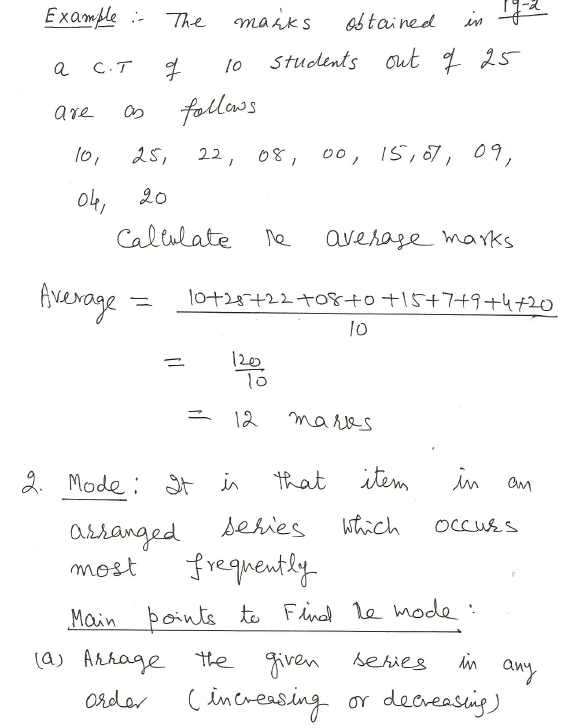 Pg-2
Example :- The marks obtained in
a C.T of 10 students out of 25
are as follows
10, 25, 22, 08, 00, 15, 07, 09,
04, 20
Calculate the average marks
Average = 10+25+22+08+0+15+7+9+4+20
10
= 120
10
= 12 marks
2. Mode: It is that item in an
arranged series which occurs
most frequently
Main points to Find the mode:
(a) Arrage the given series in any
order (increasing or decreasing)